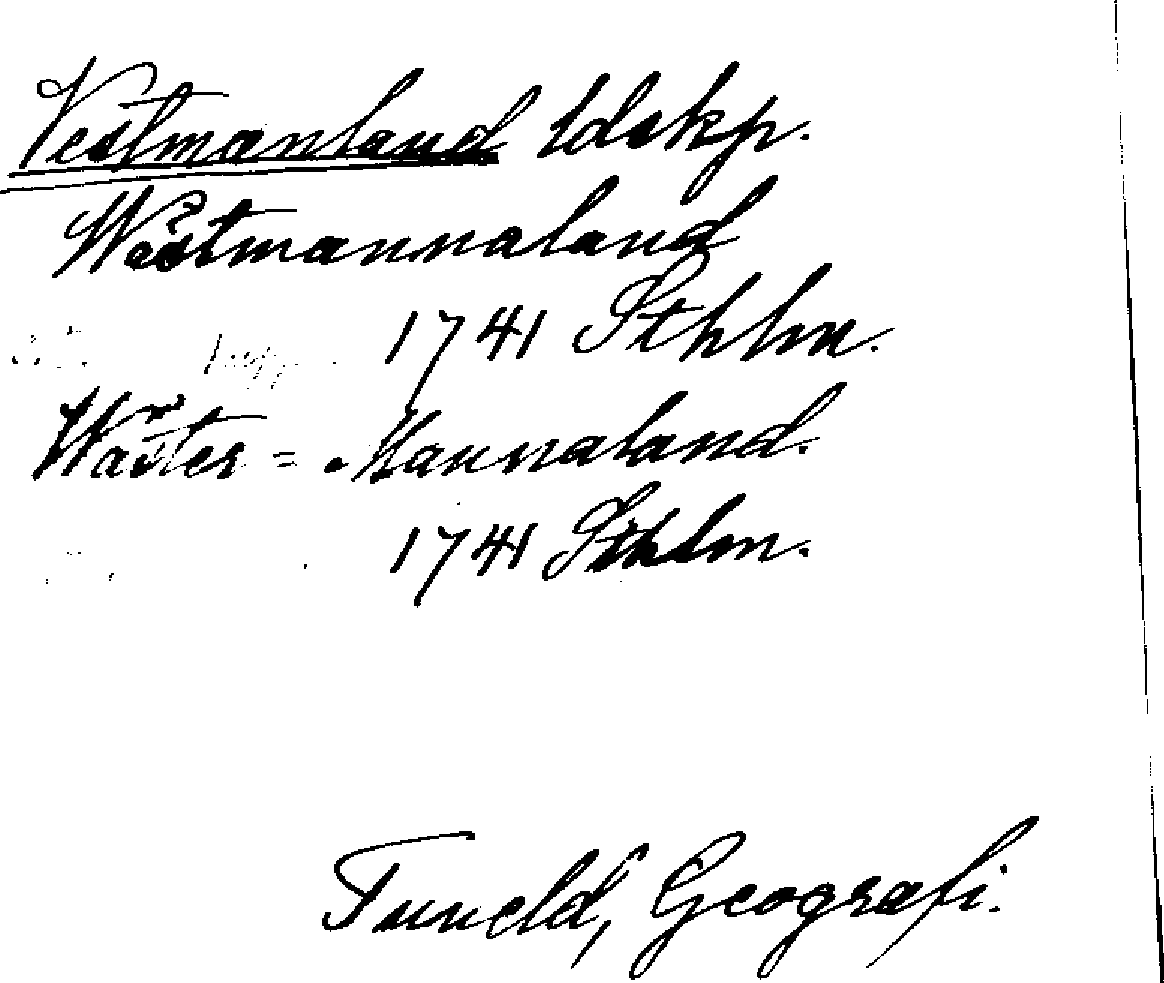 Vestmanland ldskp.
Wästmannaland
1741 Sthlm.
Wäster=Mannaland.
1741 Sthlm.
Tuneld, Geografi.